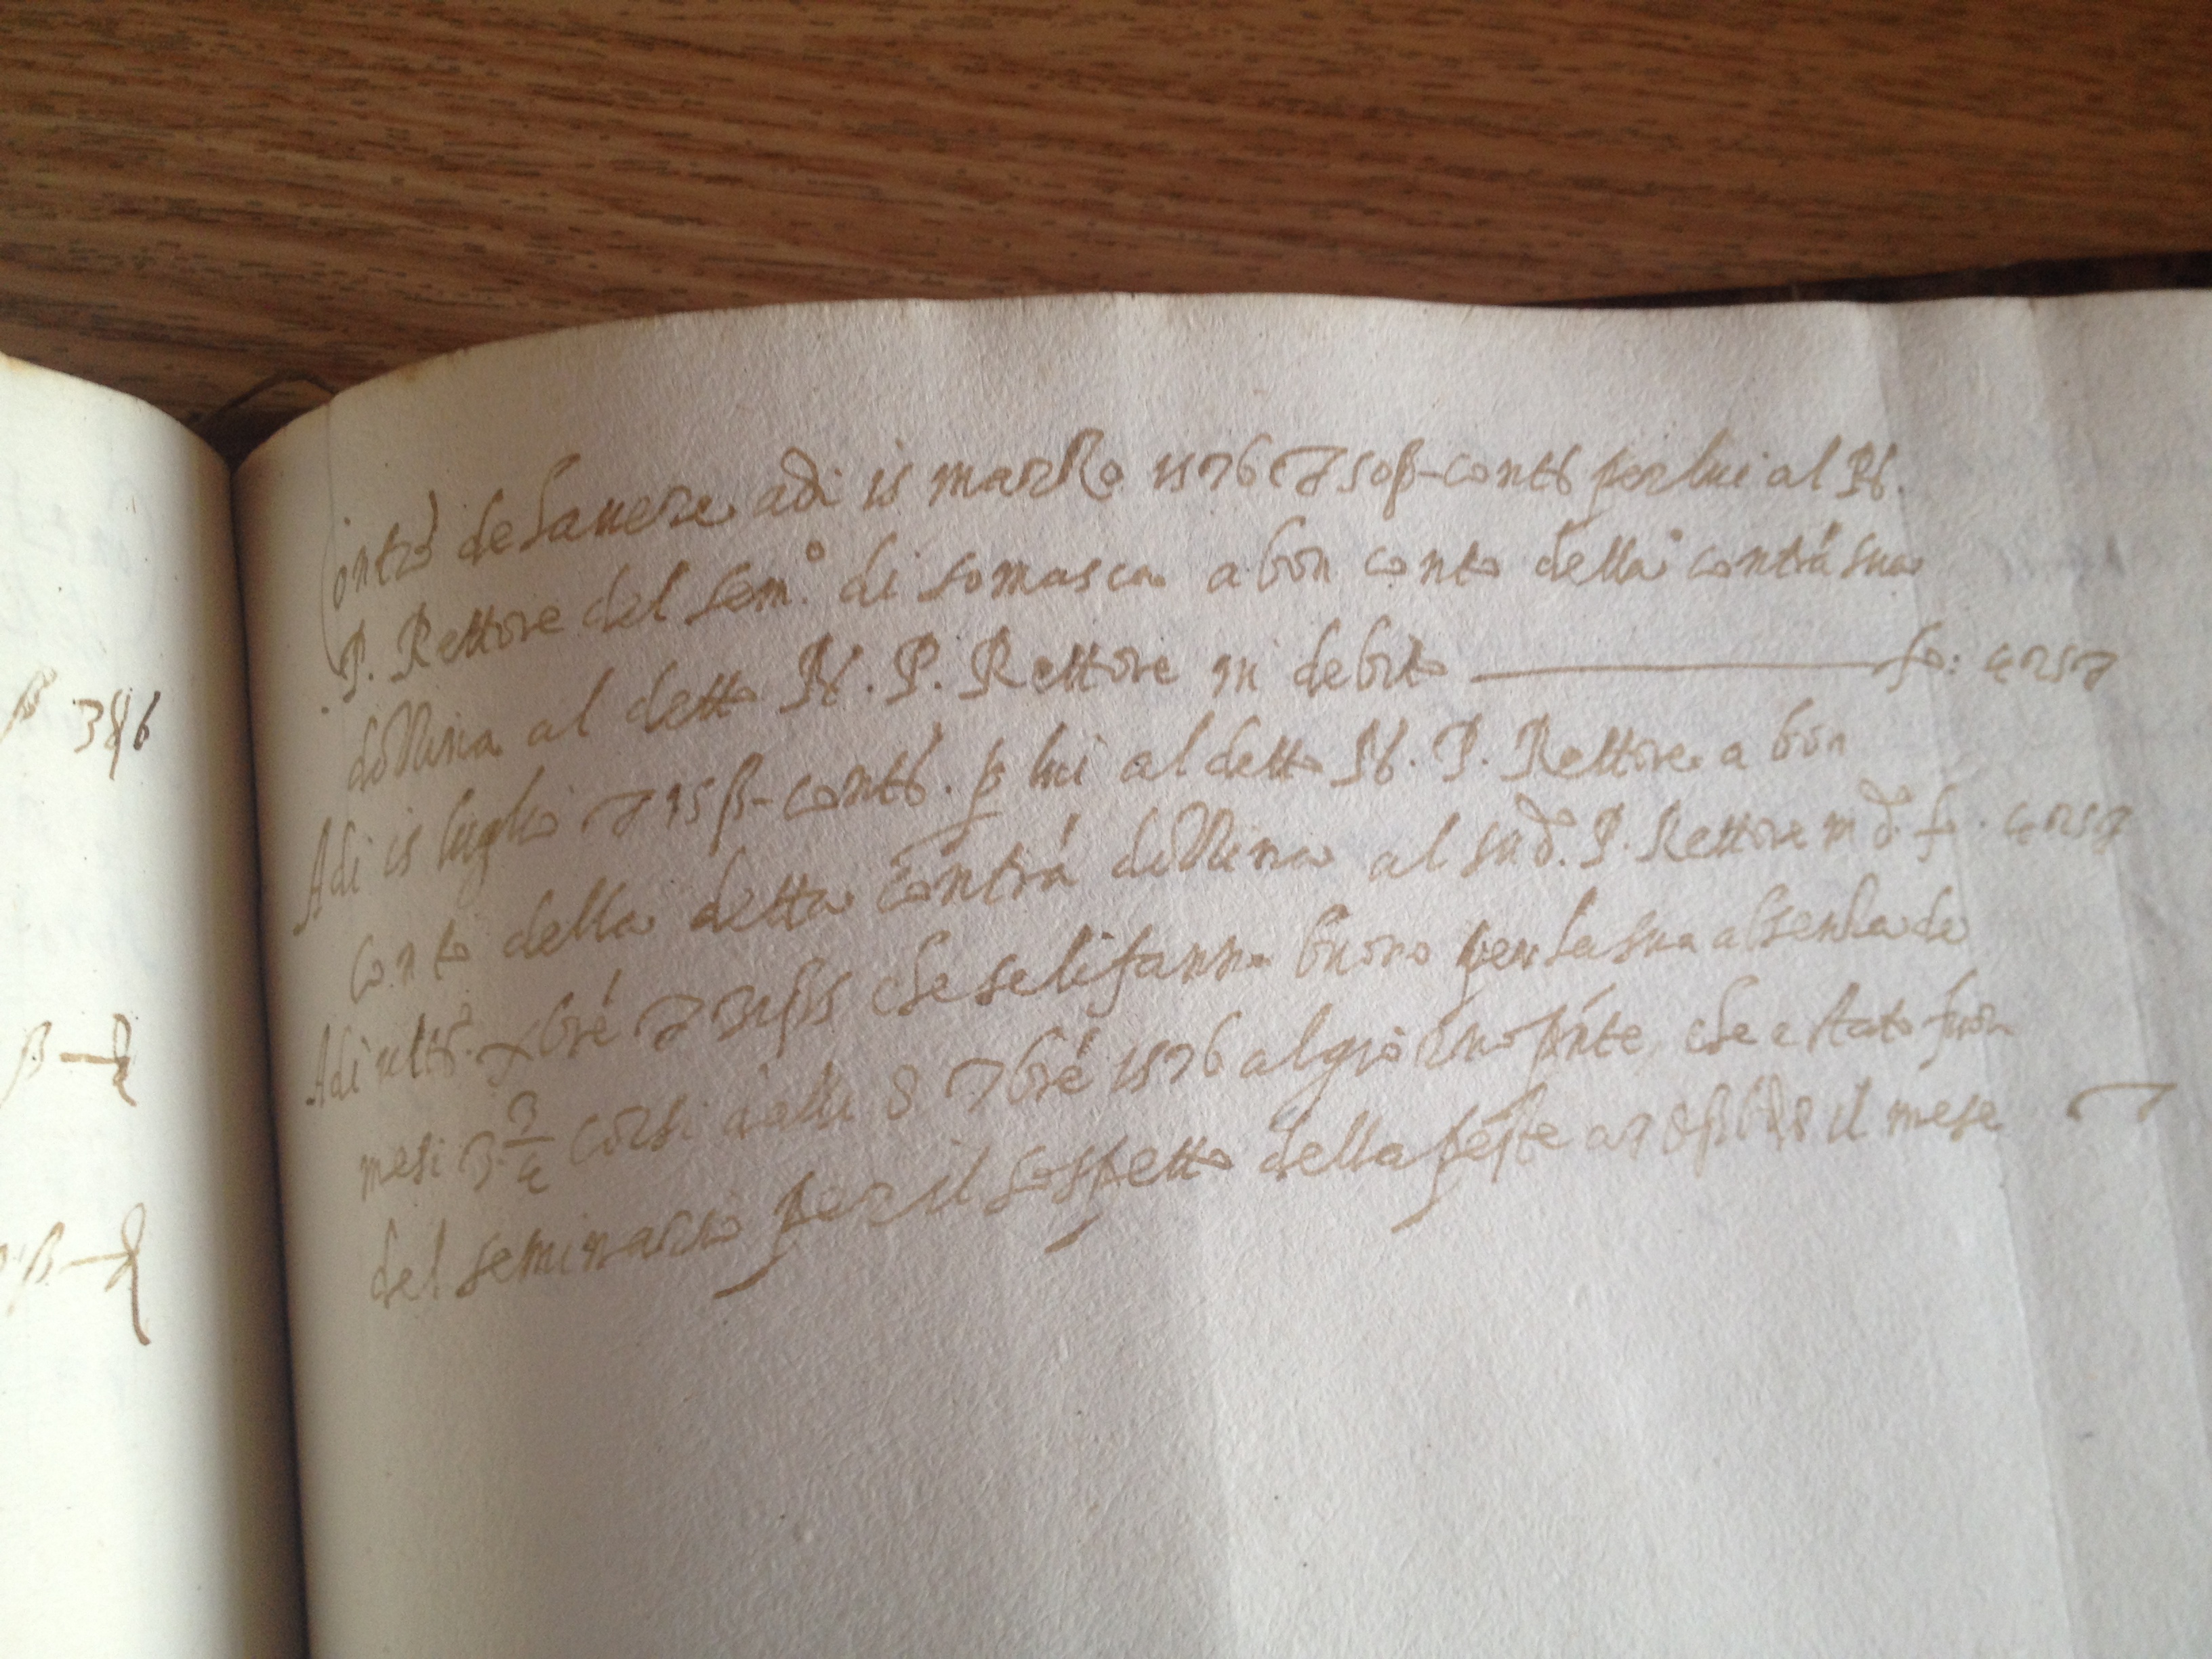 Contrō de havere adi 15 marzo 1576 50 β - contti per lui al R.
P. Rettore del sem.° di somasca a bon conto della contrā sua
dozzina al detto R. P. Rettore in debito fo:
Adi 15 luglio 35 β - contti. p lui al detto R. P. Rettore a bon
conto della detta contrā dozzina al sud.° P. Rettore in d.° fo.
Adi ulto. xbre che se li fanno buono per la sua absenza de
mesi 3 3/4 corsi dalli 8 7bre 1576 al giorno pnte che e stato fuori
del seminario per il sospetto della peste a il mese
β 346
β -
β -